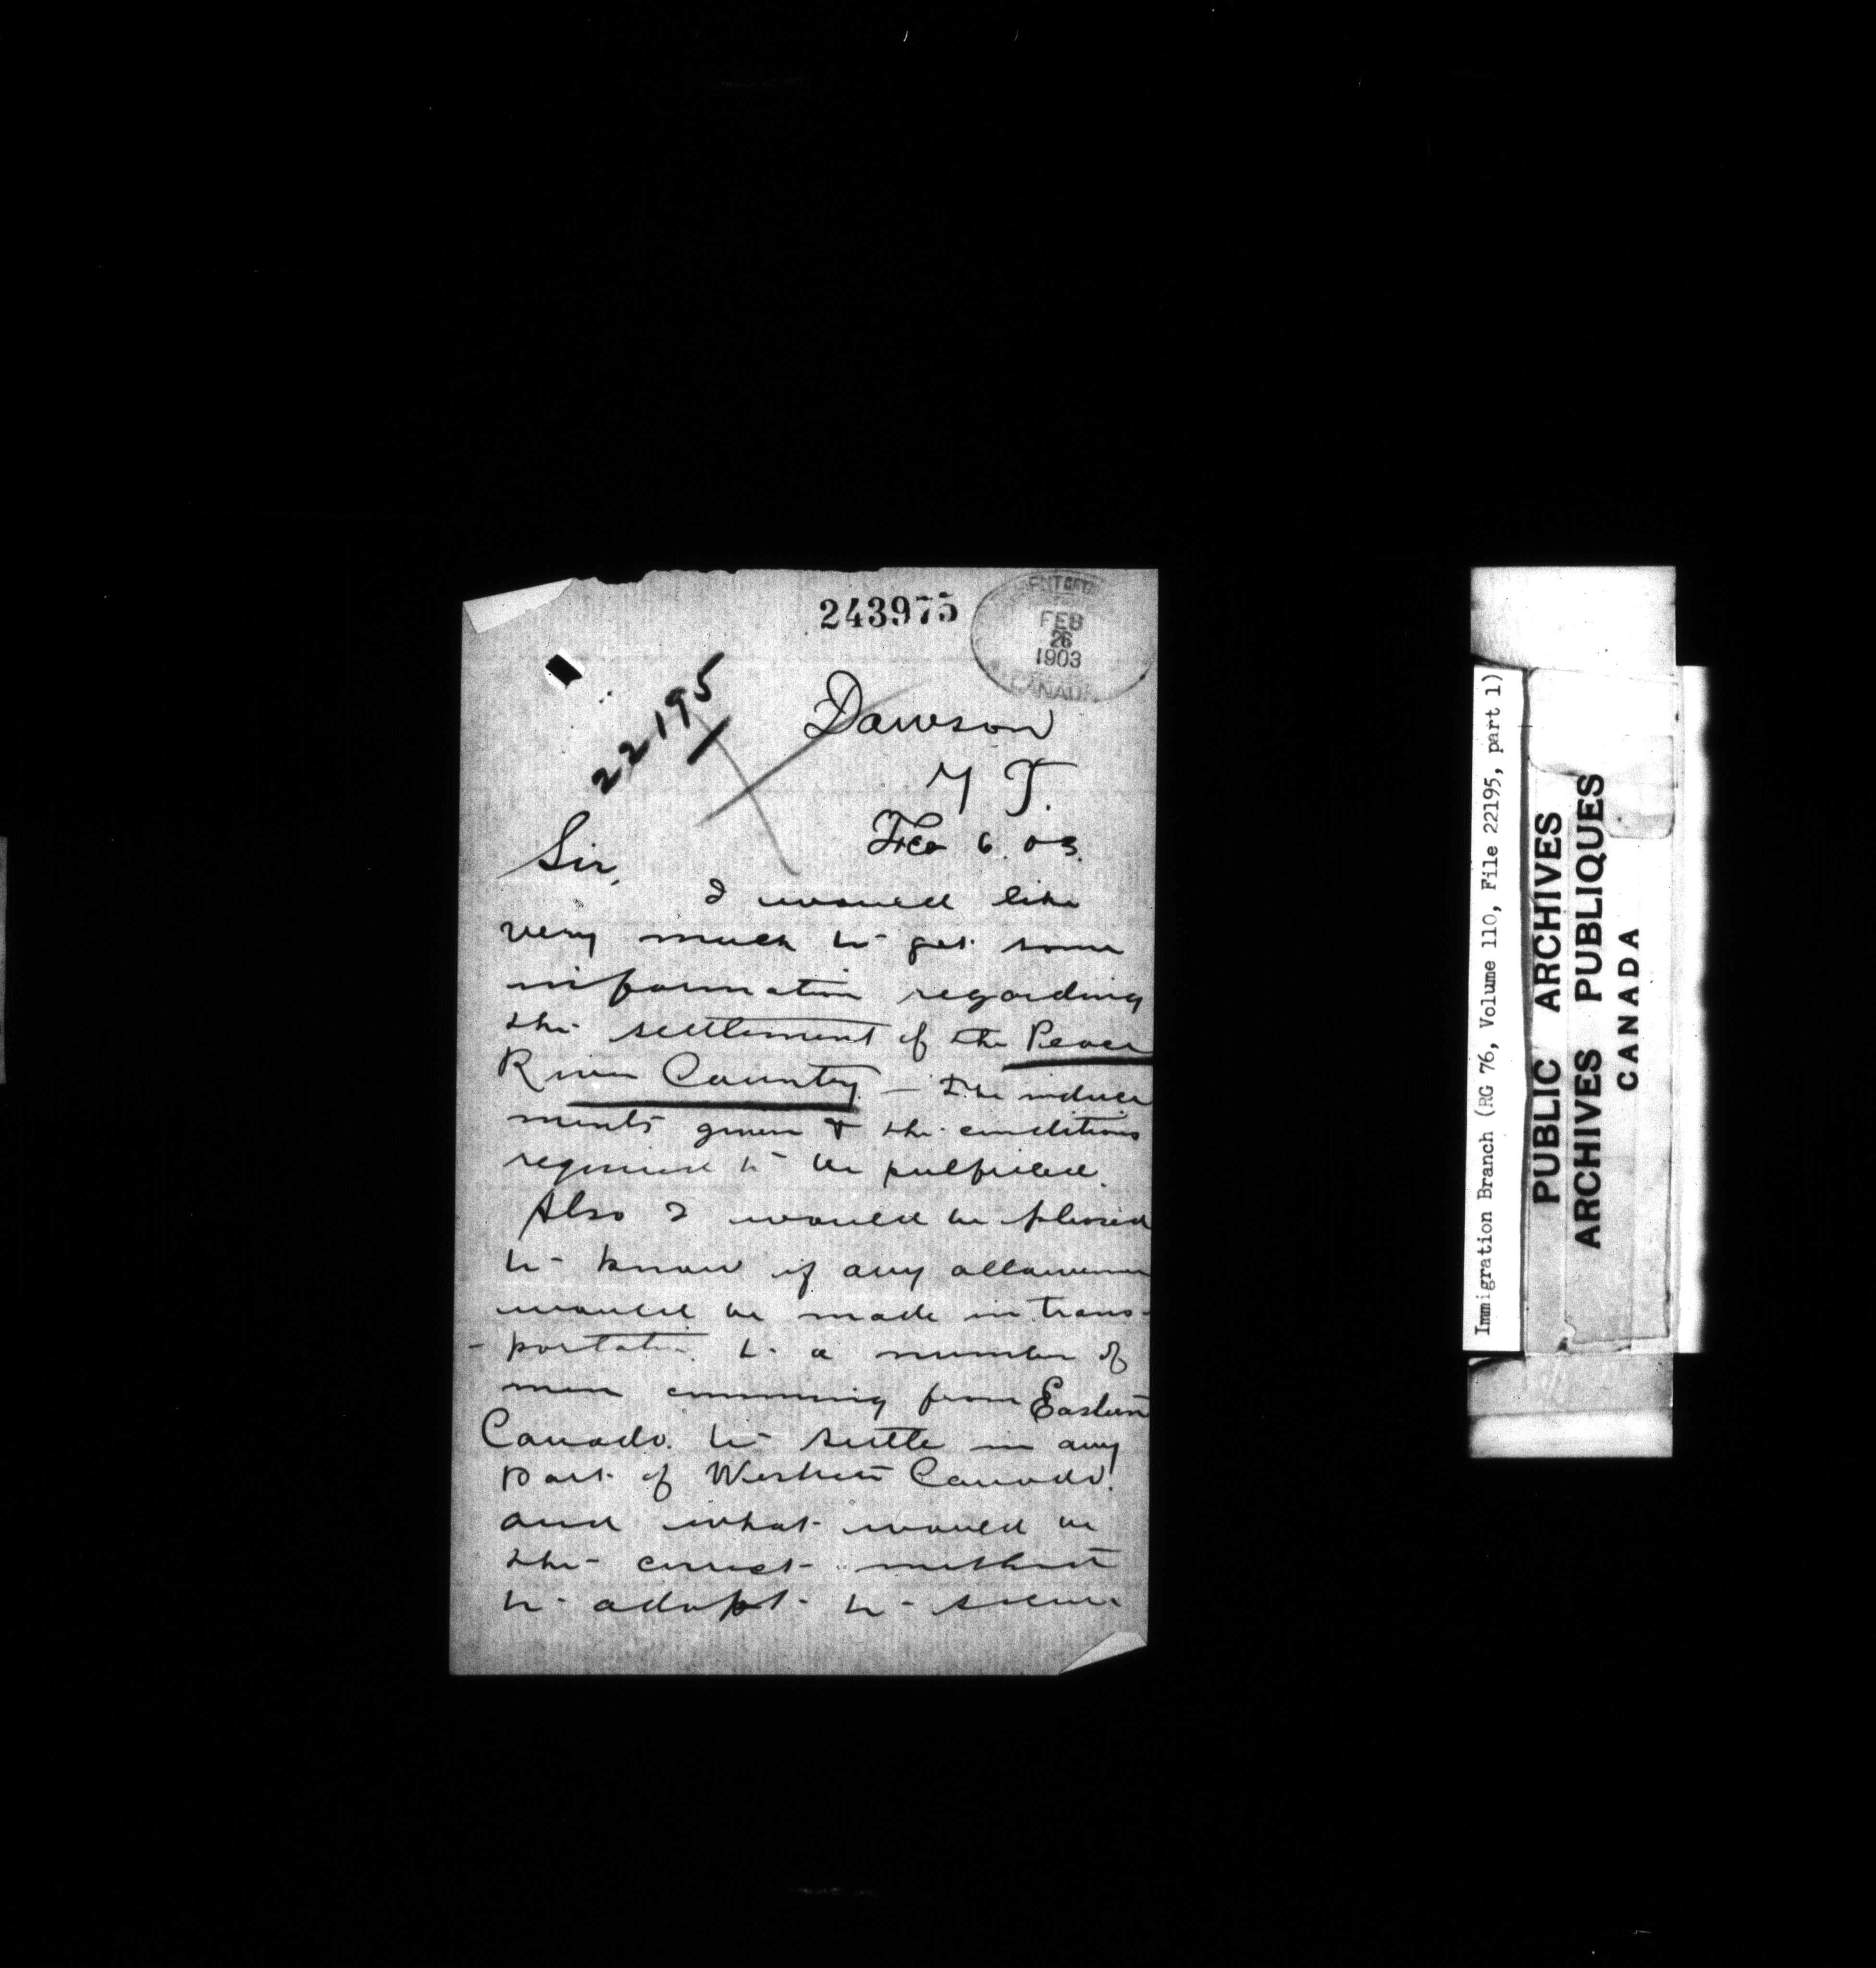 243975
FEB
26
1903
CANADA
22195
Dawson
Y T.
Feb 6. 03.
Sir,
I would like
very much to get some
information regarding
the settlement of the Peace
River Country – The induce
ments given & the conditions
required to be fulfilled.
Also I would be pleased
to know if any allowance
would be made in trans-
- portation to a number of
men comming from Eastern
Canada to settle in any
part of Western Canada.
and what would be
the correct method
to adopt to secure
Immigration Branch (RG 76, Volume 110, File 22195, part 1)
PUBLIC ARCHIVES
ARCHIVES PUBLIQUES
CANADA